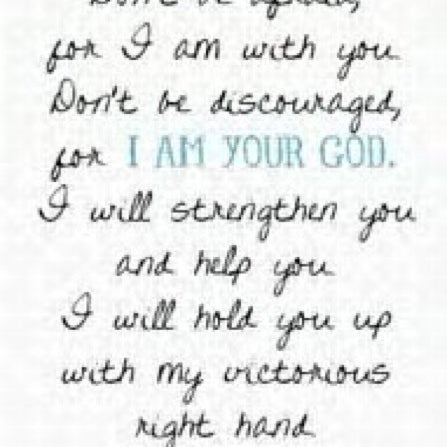 Don't be afraid,
for I am with you.
Don't be discouraged,
for I AM YOUR GOD.
I will strengthen you
and help you.
I will hold you up
with my victorious
right hand.